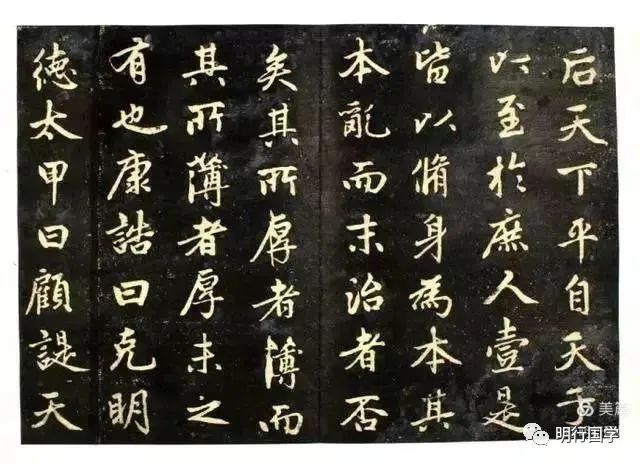 后天下平自天子
以至於庶人壹是
皆以脩身為本其
本亂而末治者否
矣其所厚者薄而
其所薄者厚未之
有也康誥曰克明
德太甲曰顧諟天
美篇
明行国学